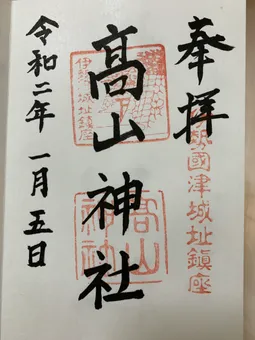 奉拝
勢國津城址鎮座
高山神社
伊勢
津城址鎮座
高山
神社
令和二年一月五日